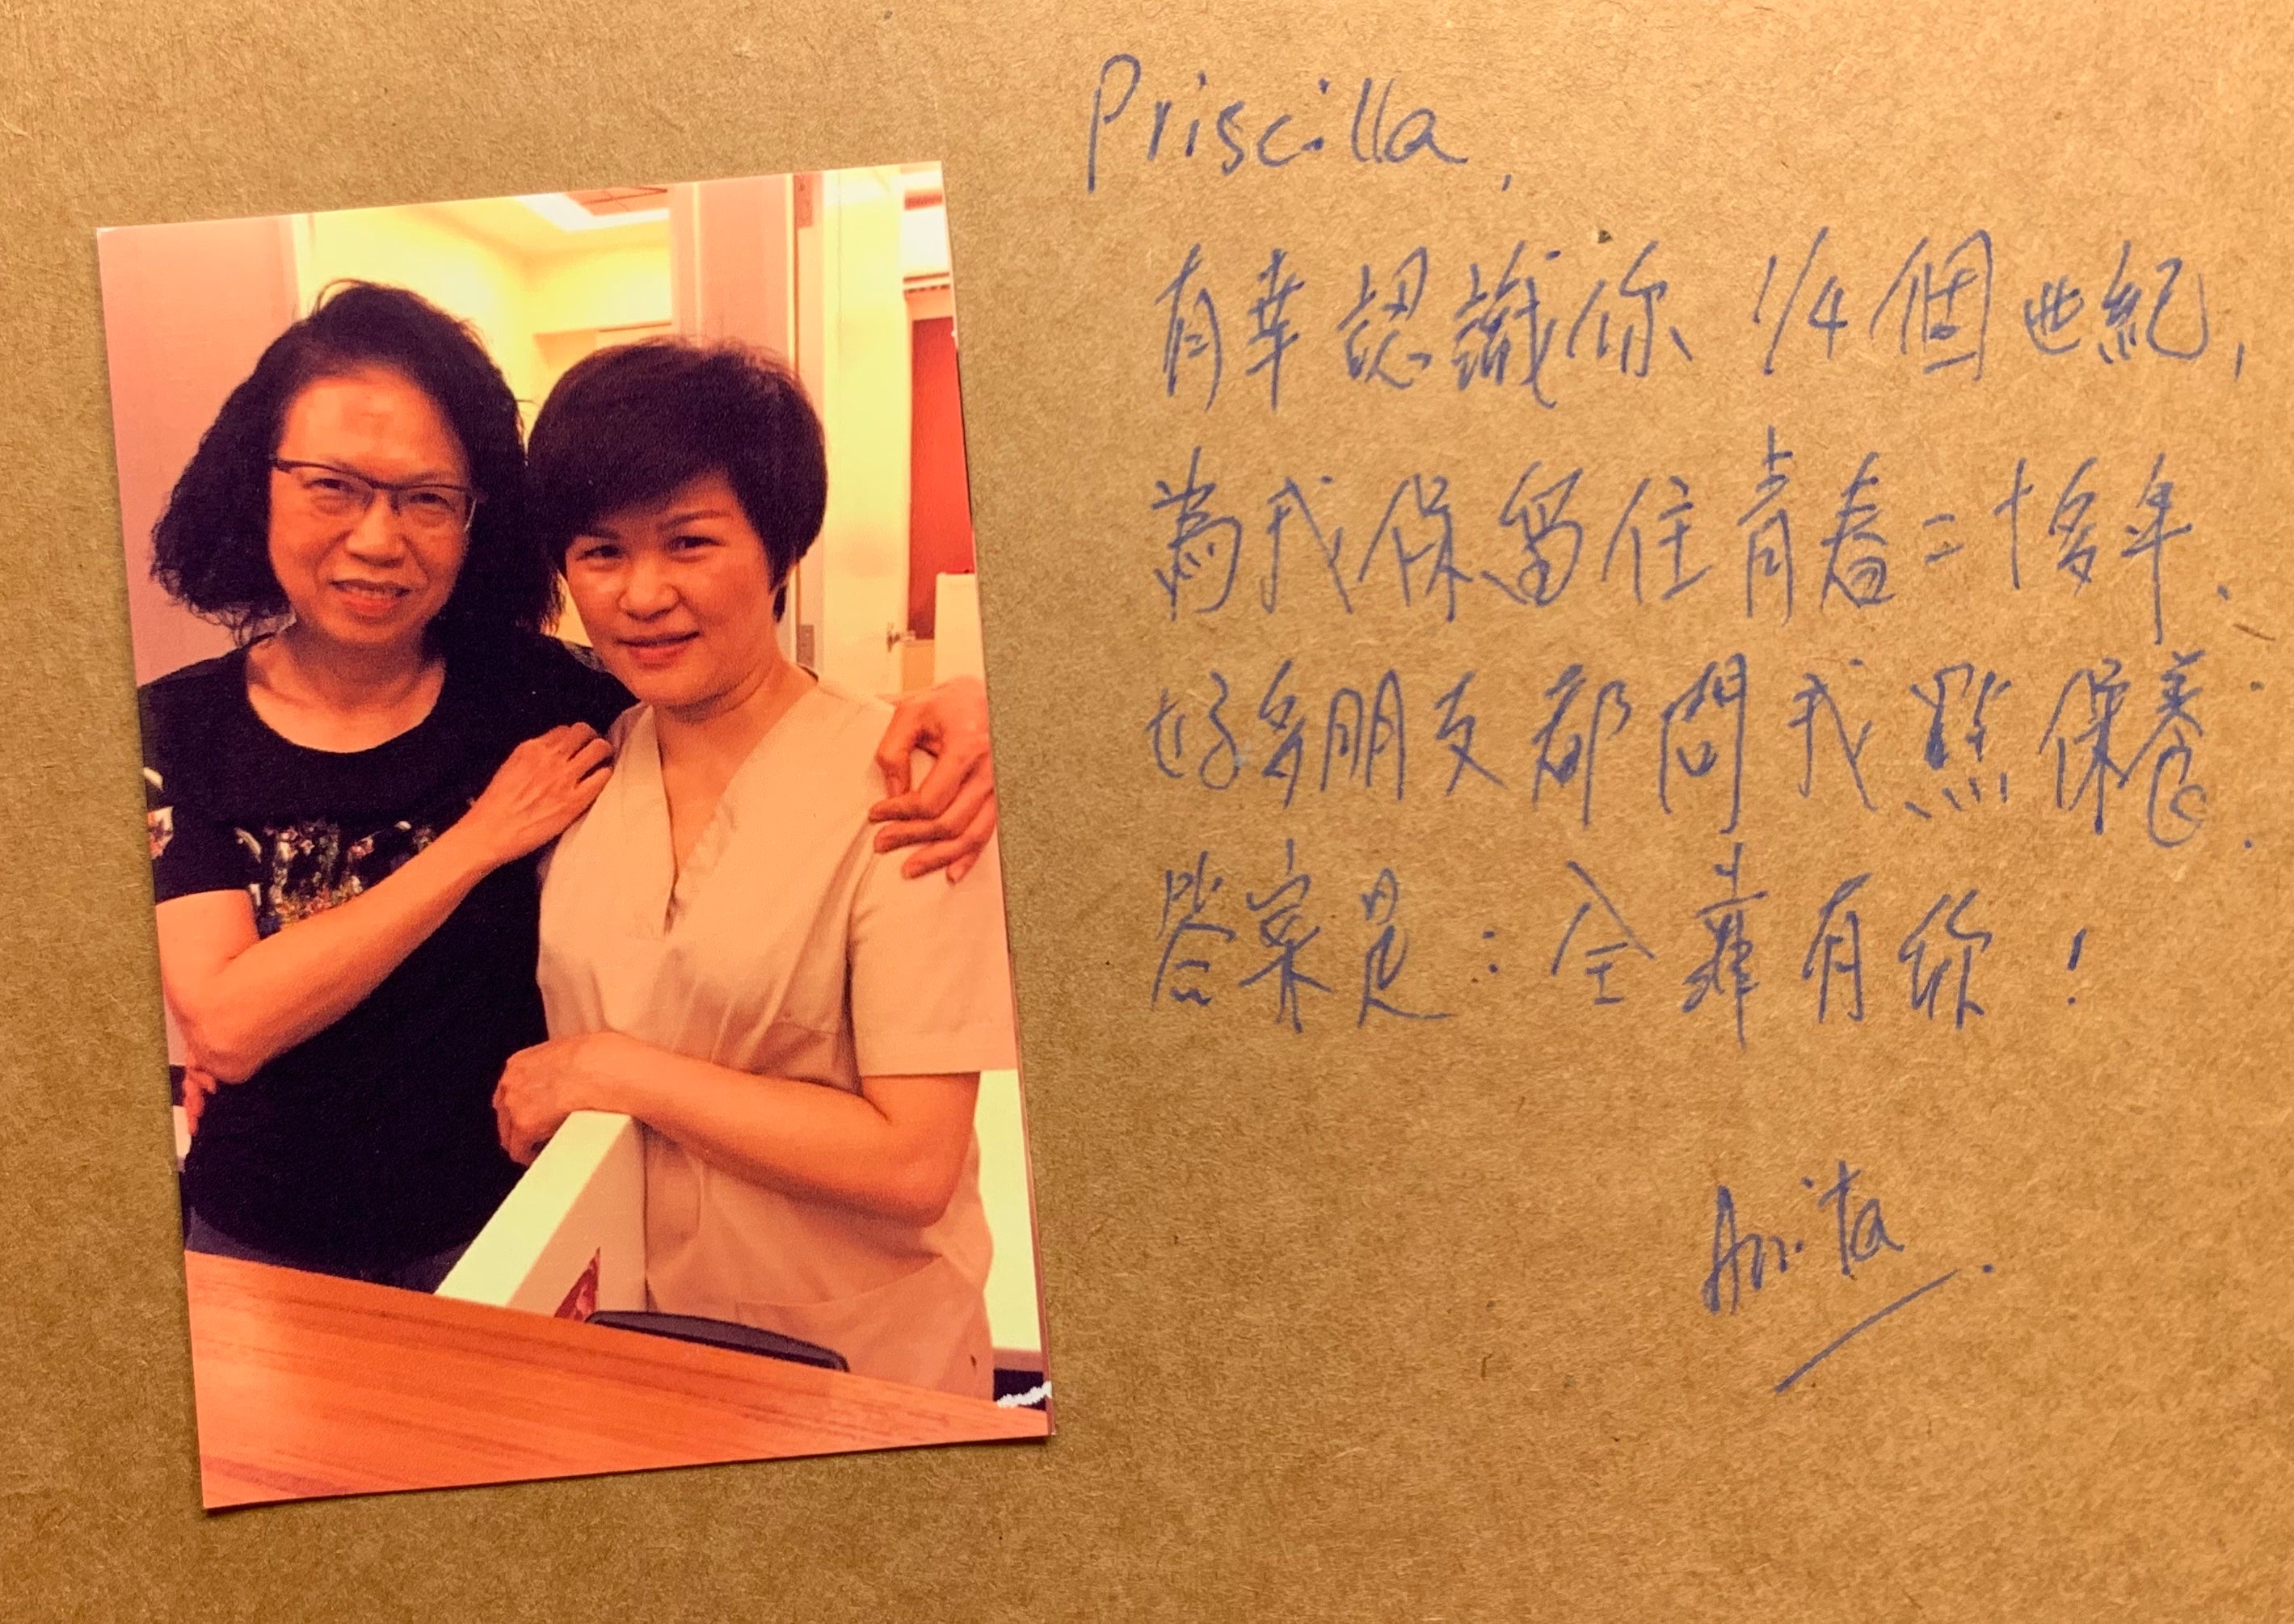 Priscilla,
有幸認識你 1/4個世紀,
為我保留住青春二十多年.
好多朋友都問我點保養.
答案是:全靠有你!
Anita.